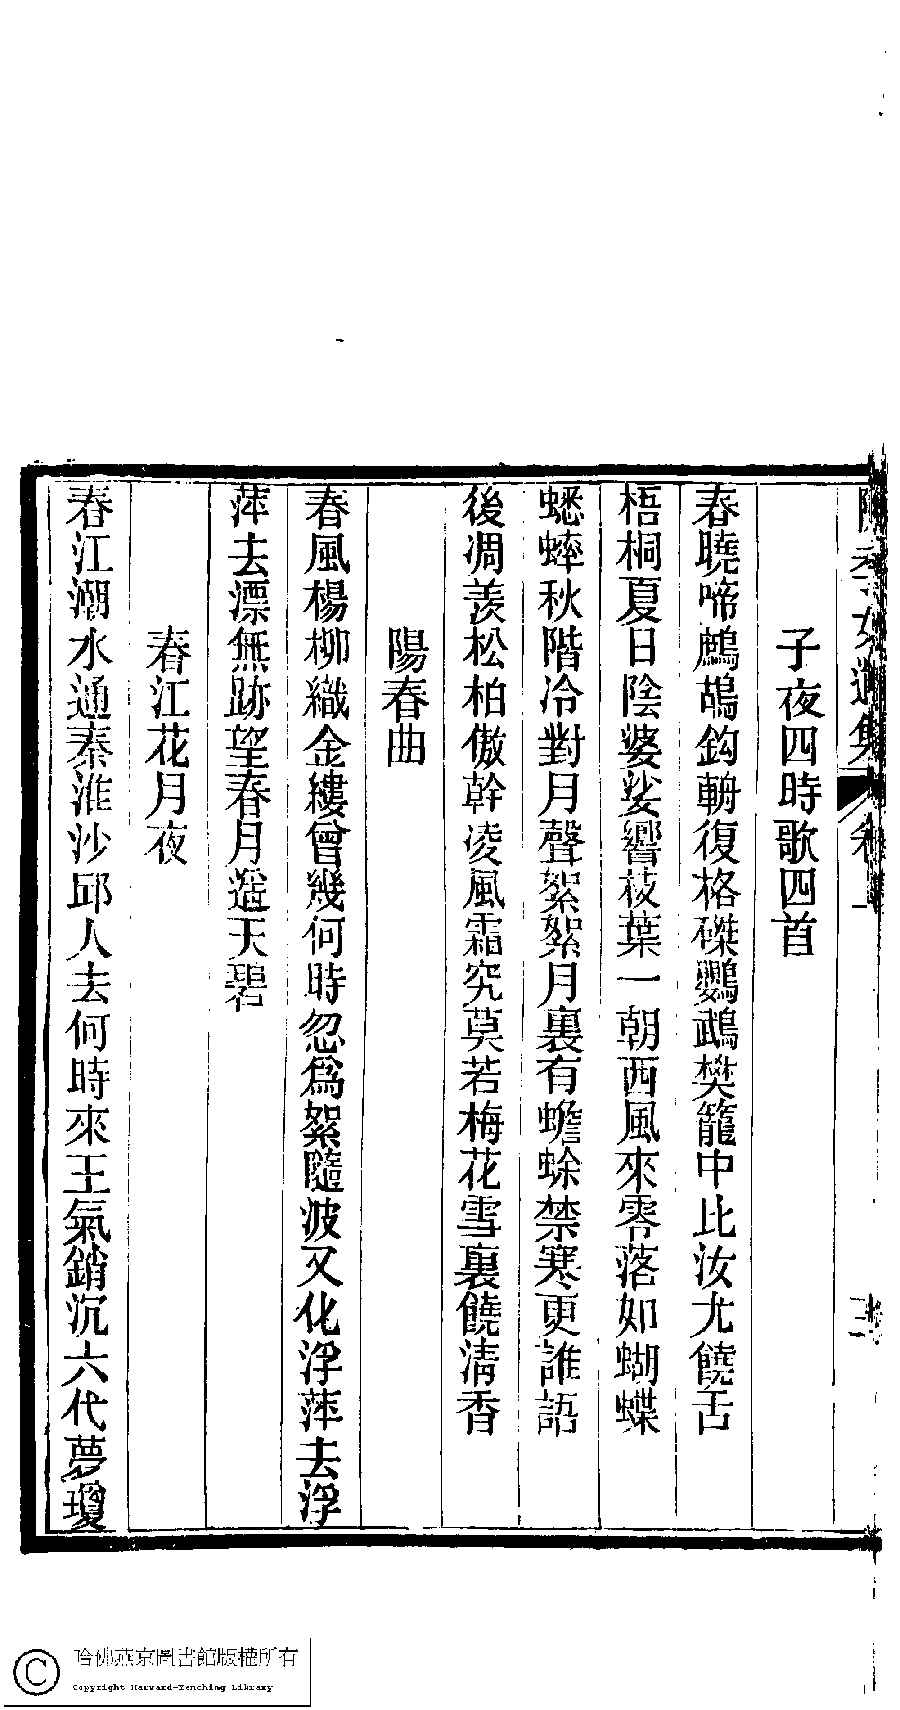 子夜四時歌四首
春曉啼鷓鴣鈎輈復格磔鸚鵡樊籠中比汝尤饒舌
梧桐夏日陰婆娑響枝葉一朝西風來零落如蝴蝶
蟋蟀秋階冷對月聲絮絮月裏有蟾蜍禁寒更誰語
後凋羨松柏傲幹凌風霜究莫若梅花雪裏饒清香
陽春曲
春風楊柳織金縷曾幾何時忽爲絮隨波又化浮萍去浮
萍去漂無跡望春月遥天碧
春江花月夜
春江潮水通秦淮沙邱人去何時來王氣銷沉六代夢瓊
哈佛燕京圖書館版權所有
Copyright Harvard-Yenching Library